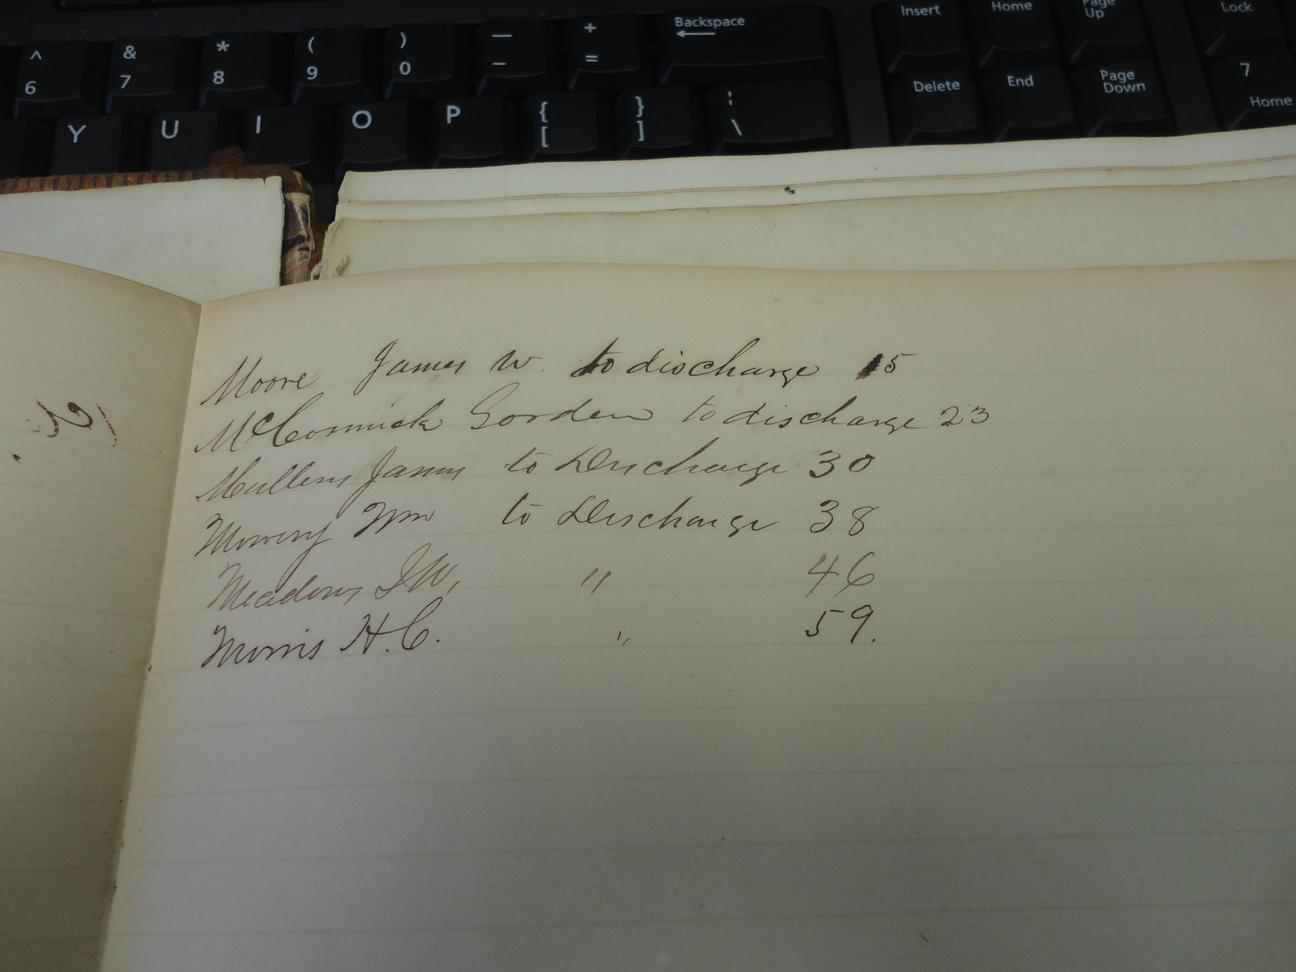 ^ & * ( ) — + Backspace Insert Home Page Up Lock
6 7 8 9 0 - = Delete End Page Down 7 Home
Y U I O P { [ } ] \
Moore James W. to discharge 15
McCormick Gorden to discharge 23
Mullens James to Discharge 30
Mowery Wm to Discharge 38
Meadows I W, " 46
Morris H. C. " 59.